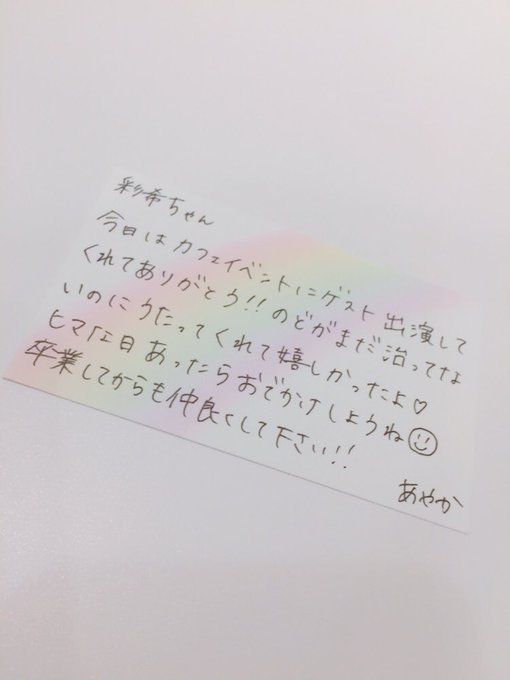 彩希ちゃん
今日はカフェイベントにゲスト出演して
くれてありがとう!!のどがまだ治ってな
いのにうたってくれて嬉しかったよ♡
ヒマな日あったらおでかけしようね☺
卒業してからも仲良くして下さい!!
あやか